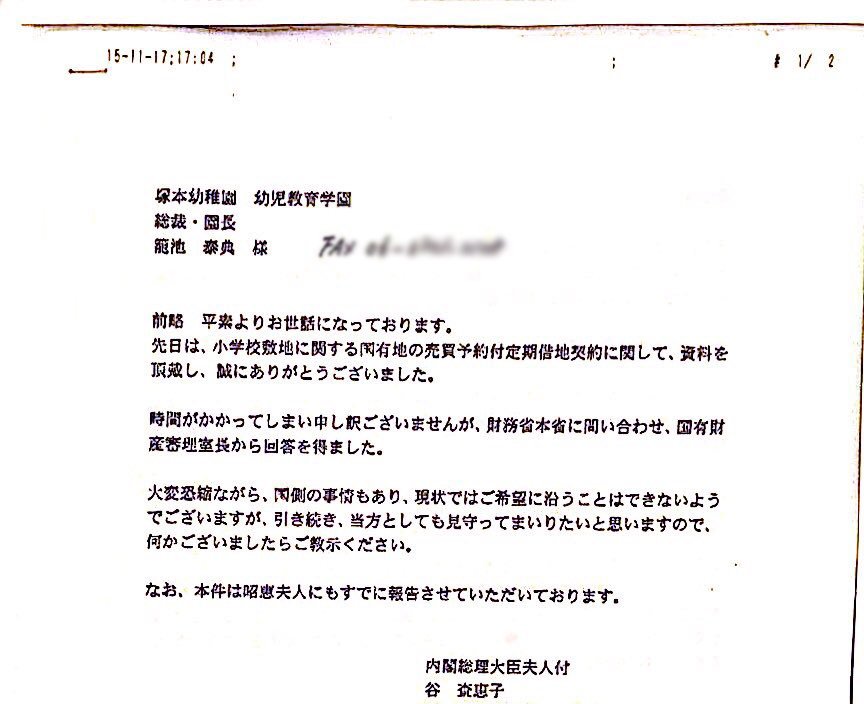 15-11-17;17:04 ; ; # 1/ 2
塚本幼稚園 幼児教育学園
総裁・園長
籠池 泰典 様 FAX 06-
前略 平素よりお世話になっております。
先日は、小学校敷地に関する国有地の売買予約付定期借地契約に関して、資料を
頂戴し、誠にありがとうございました。
時間がかかってしまい申し訳ございませんが、財務省本省に問い合わせ、国有財
産審理室長から回答を得ました。
大変恐縮ながら、国側の事情もあり、現状ではご希望に沿うことはできないよう
でございますが、引き続き、当方としても見守ってまいりたいと思いますので、
何かございましたらご教示ください。
なお、本件は昭恵夫人にもすでに報告させていただいております。
内閣総理大臣夫人付
谷 査恵子